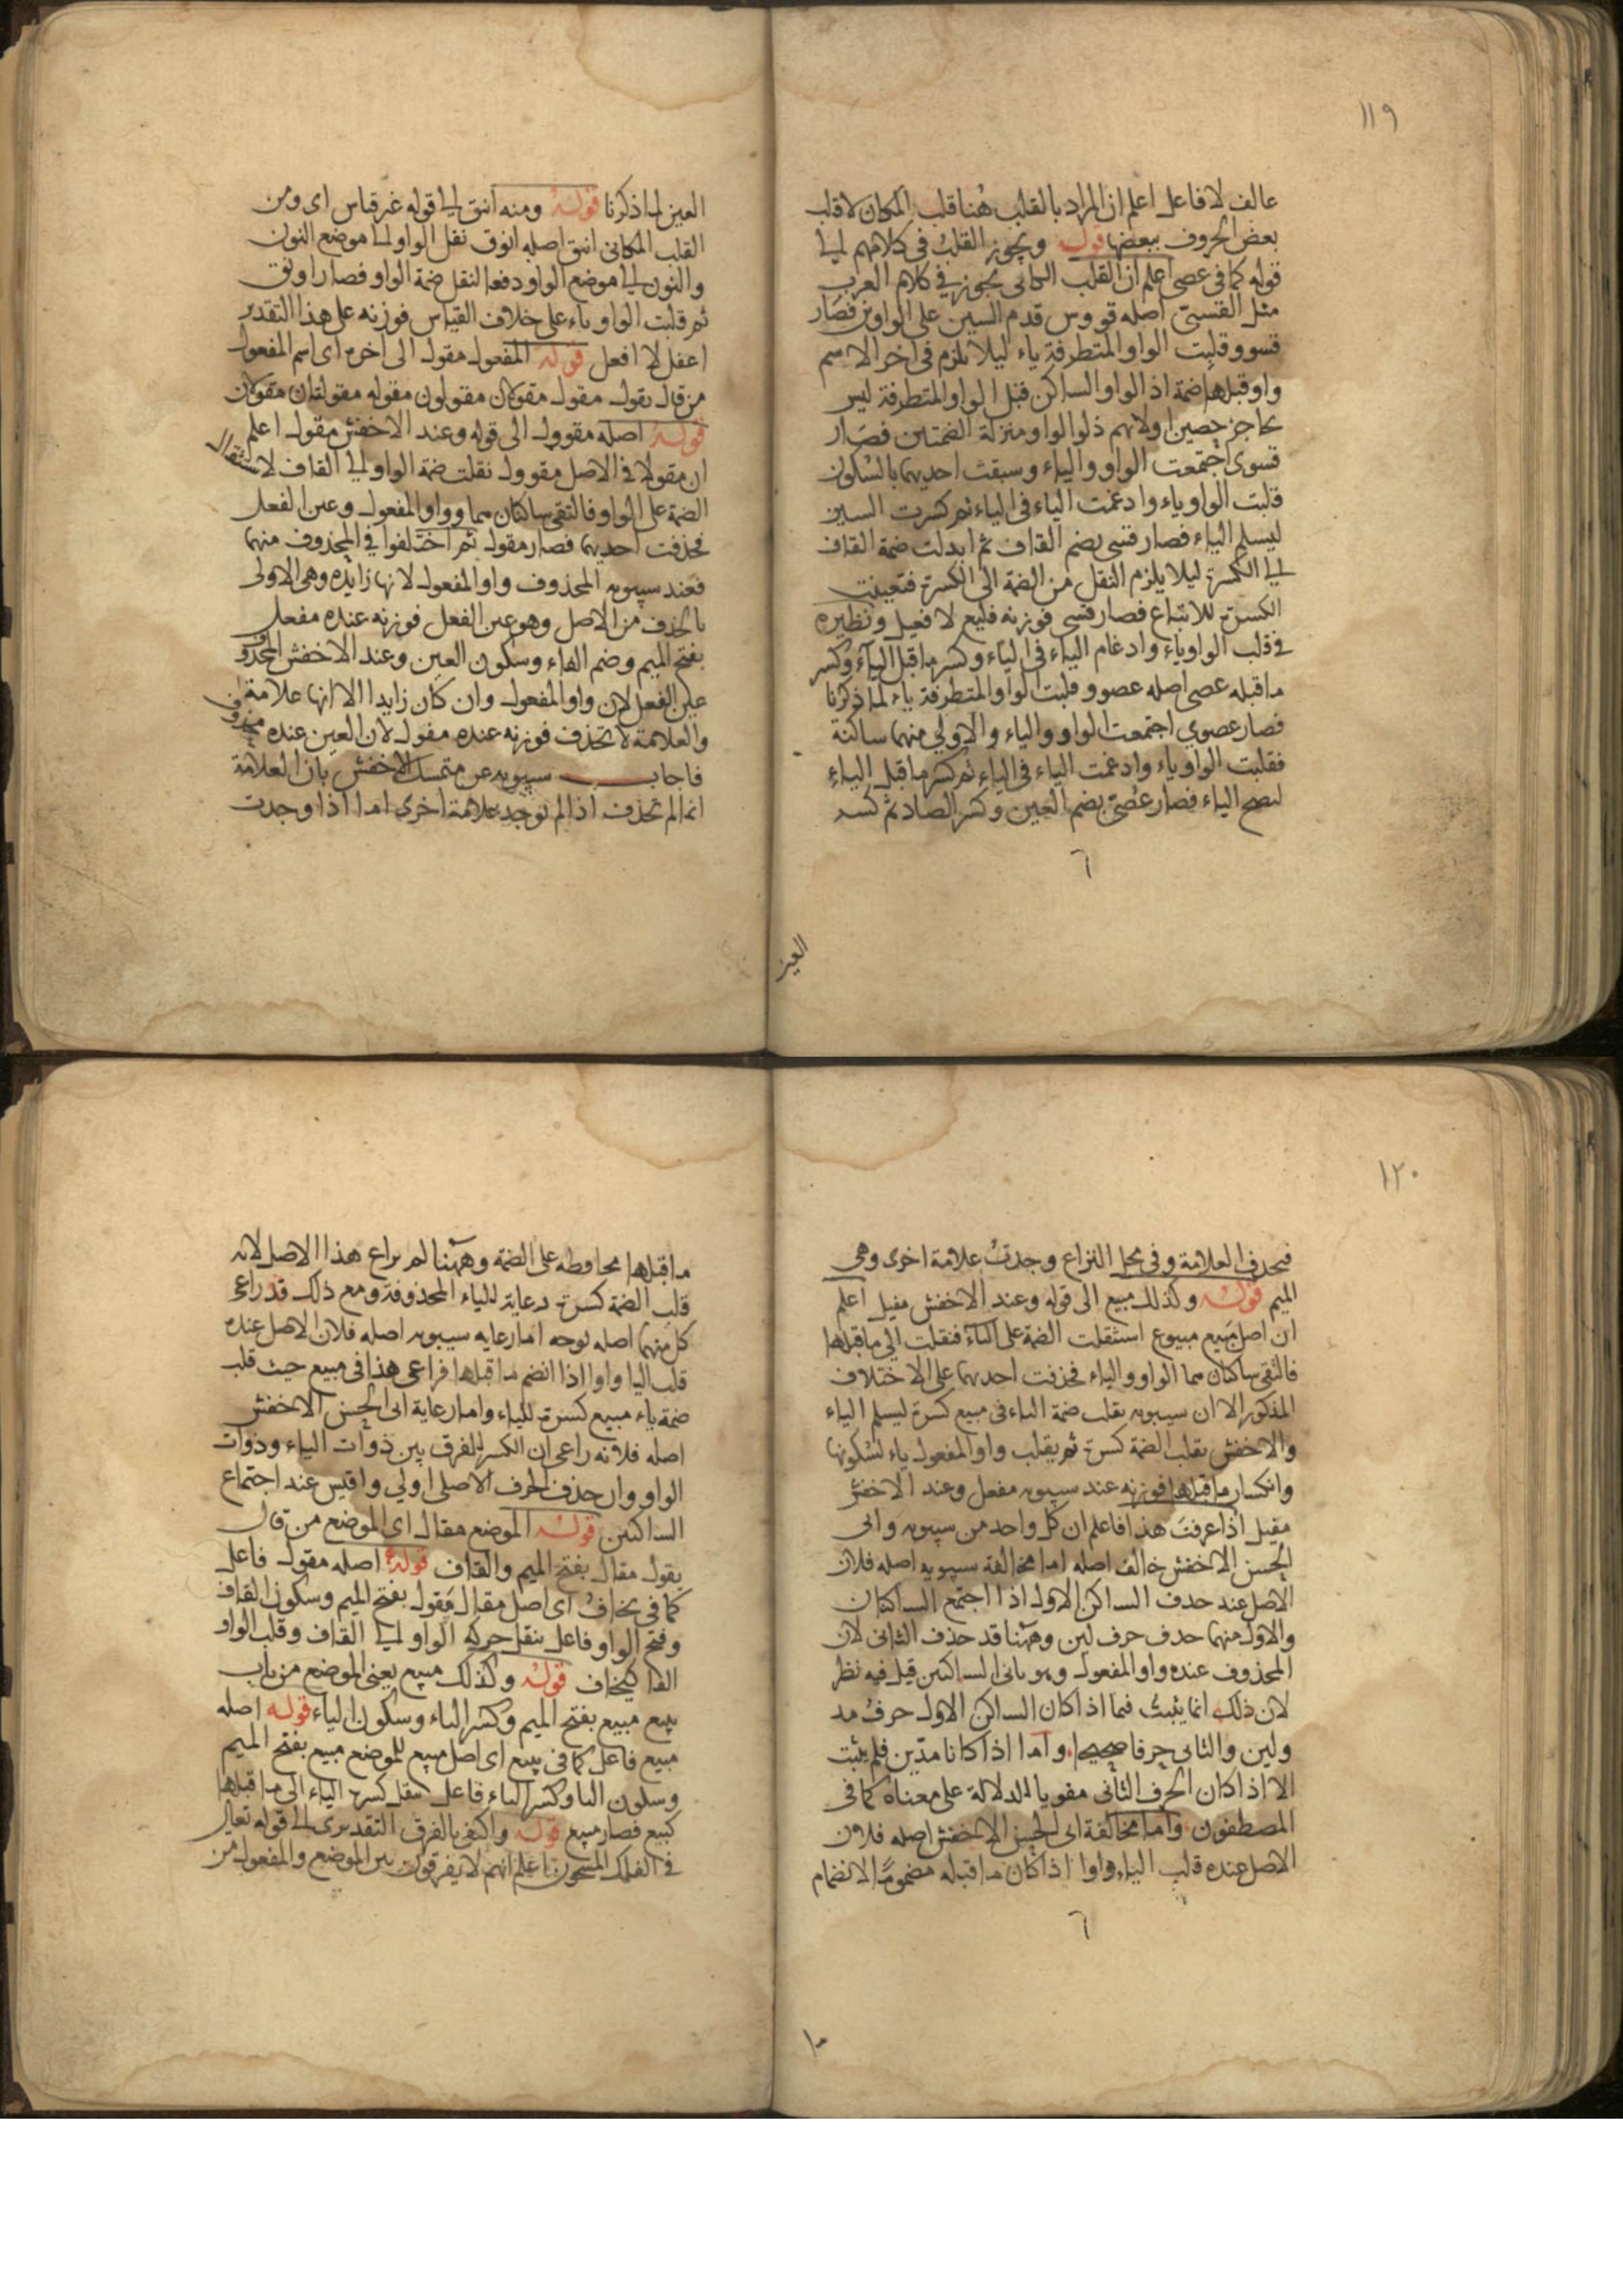 ١١٩
عالف لا فاعل اعلم ان المراد بالقلب هنا قلب المكان لا قلب
بعض الحروف ببعضها قوله ويجوز القلب فى كلامهم الى
قوله كما فى عصى اعلم ان القلب المكانى يجوز فى كلام العرب
مثل القسىّ اصله قووس قدم السين على الواوين فصار
قسوو قلبت الواو المتطرفة ياء ليلا يلزم فى اخر الاسم
واو قبلها ضمة اذ الواو الساكن قبل الواو المتطرفة ليس
بحاجز حصين اولانهم نزلوا الواو منزلة الضمتين فصار
قسوى اجتمعت الواو والياء وسبقت احديهما بالسكون
قلبت الواو ياء وادغمت الياء فى الياء ثم كسرت السين
ليسلم الياء فصار قسى بضم القاف ثم ابدلت ضمة القاف
الى الكسرة ليلا يلزم النقل من الضمة الى الكسرة فتعينت
الكسرة للاتباع فصار قسى فوزنه فليع لا فعيل ونظيره
فى قلب الواو ياء وادغام الياء فى الياء وكسر ما قبل الياء وكسر
ما قبله عصى اصله عصوو قلبت الواو المتطرفة ياء لما ذكرنا
فصار عصوى اجتمعت الواو والياء والاولى منهما ساكنة
فقلبت الواو ياء وادغمت الياء فى الياء ثم كسر ما قبل الياء
لتصح الياء فصار عُصىّ بضم العين وكسر الصاد ثم كسر
٦
العين
العين لما ذكرنا قوله ومنه انيق الى قوله غير قياس اى ومن
القلب المكانى انيق اصله انوق نقل الواو الى موضع النون
والنون الى موضع الواو دفعا لثقل ضمة الواو فصار اونق
ثم قلبت الواو ياء على خلاف القياس فوزنه على هذا التقدير
اعفل لا افعل قوله المفعول مقول الى اخره اى اسم المفعول
من قال يقول مقول مقولان مقولون مقولة مقولتان مقولات
قوله اصله مقوول الى قوله وعند الاخفش مقول اعلم
ان مقولا فى الاصل مقوول نقلت ضمة الواو الى القاف لاستثقال
الضمة على الواو فالتقى ساكنان هما واو المفعول وعين الفعل
فحذفت احديهما فصار مقول ثم اختلفوا فى المحذوف منهما
فعند سيبويه المحذوف واو المفعول لانها زايدة وهى الاولى
بالحذف من الاصل وهو عين الفعل فوزنه عنده مفعل
بفتح الميم وضم الفاء وسكون العين وعند الاخفش المحذوف
عين الفعل لان واو المفعول وان كان زايدا الا انها علامة
والعلامة لا تحذف فوزنه عنده مفول لان العين عنده محذوف
فاجاب سيبويه عن متمسك الاخفش بان العلامة
انما لم تحذف اذا لم توجد علامة اخرى اما اذا وجدت
١٢٠
فيحذف العلامة وفى محل النزاع وجدت علامة اخرى وهى
الميم قوله وكذلك مبيع الى قوله وعند الاخفش مفيل اعلم
ان اصل مبيع مبيوع استثقلت الضمة على الياء فنقلت الى ما قبلها
فالتقى ساكنان هما الواو والياء فحذفت احديهما على الاختلاف
المذكور الا ان سيبويه يقلب ضمة الباء فى مبيع كسرة ليسلم الياء
والاخفش يقلب الضمة كسرة ثم يقلب واو المفعول ياء لسكونها
وانكسار ما قبلها فوزنه عند سيبويه مفعل وعند الاخفش
مفيل اذا عرفت هذا فاعلم ان كل واحد من سيبويه وابى
الحسن الاخفش خالف اصله اما مخالفة سيبويه اصله فلان
الاصل عند حذف الساكن الاول اذا اجتمع الساكنان
والاول منهما حذف حرف لين وههنا قد حذف الثانى لان
المحذوف عنده واو المفعول وهو ثانى الساكنين قيل فيه نظر
لان ذلك انما يثبت فيما اذا كان الساكن الاول حرف مد
ولين والثانى حرفا صحيحا واما اذا كانا مدّين فلم يثبت
الا اذا كان الحرف الثانى مقويا للدلالة على معناه كما فى
المصطفون واما مخالفة ابى الحسن الاخفش اصله فلان
الاصل عنده قلب الياء واوا اذا كان ما قبله مضموما لانضمام
٦
ما
ما قبلها محافظة على الضمة وههنا لم يراع هذا الاصل لانه
قلب الضمة كسرة رعاية للياء المحذوفة ومع ذلك قد راعى
كل منهما اصله بوجه اما رعاية سيبويه اصله فلان الاصل عنده
قلب اليا واوا اذا انضم ما قبلها فراعى هذا فى مبيع حيث قلب
ضمة باء مبيع كسرة للياء واما رعاية ابى الحسن الاخفش
اصله فلانه راعى ان الكسر للفرق بين ذوات الياء وذوات
الواو وان حذف الحرف الاصلى اولى واقيس عند اجتماع
الساكنين قوله الموضع مقال اى الموضع من قال
يقول مقال بفتح الميم والقاف قوله اصله مقول فاعل
كما فى يخاف اى اصل مقال مَقول بفتح الميم وسكون القاف
وفتح الواو فاعل بنقل حركة الواو الى القاف وقلب الواو
الفا كيخاف قوله وكذلك مبيع يعنى الموضع من باب
يبيع مبيع بفتح الميم وكسر الباء وسكون الياء قوله اصله
مبيع فاعل كما فى يبيع اى اصل مبيع للموضع مبيع بفتح الميم
وسكون البا وكسر الياء فاعل بنقل كسرة الياء الى ما قبلها
كيبيع فصار مبيع قوله واكتفى بالفرق التقديرى الى قوله تعالى
فى الفلك المشحون اعلم انهم لا يفرقون بين الموضع والمفعول من